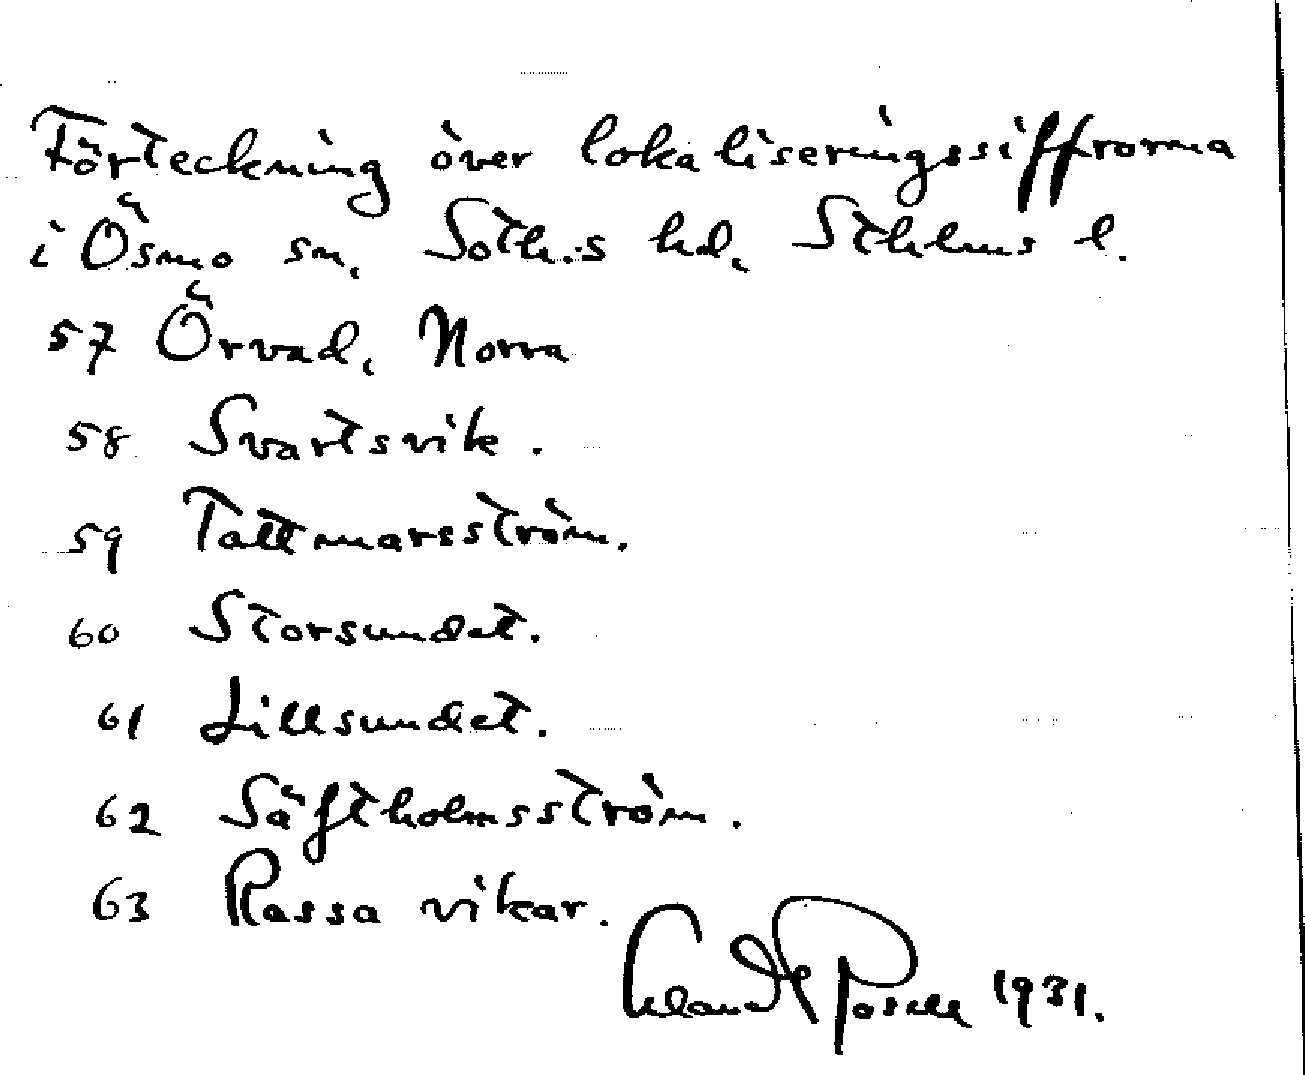 Förteckning över lokaliseringssiffrorna
i Ösmo sn, Soth:s hd, Sthlms l.
57 Örvad, Norra
58 Svartsvik.
59 Tallmarsström.
60 Storsundet.
61 Lillsundet.
62 Säftholmsström.
63 Rassa vikar.
1931.